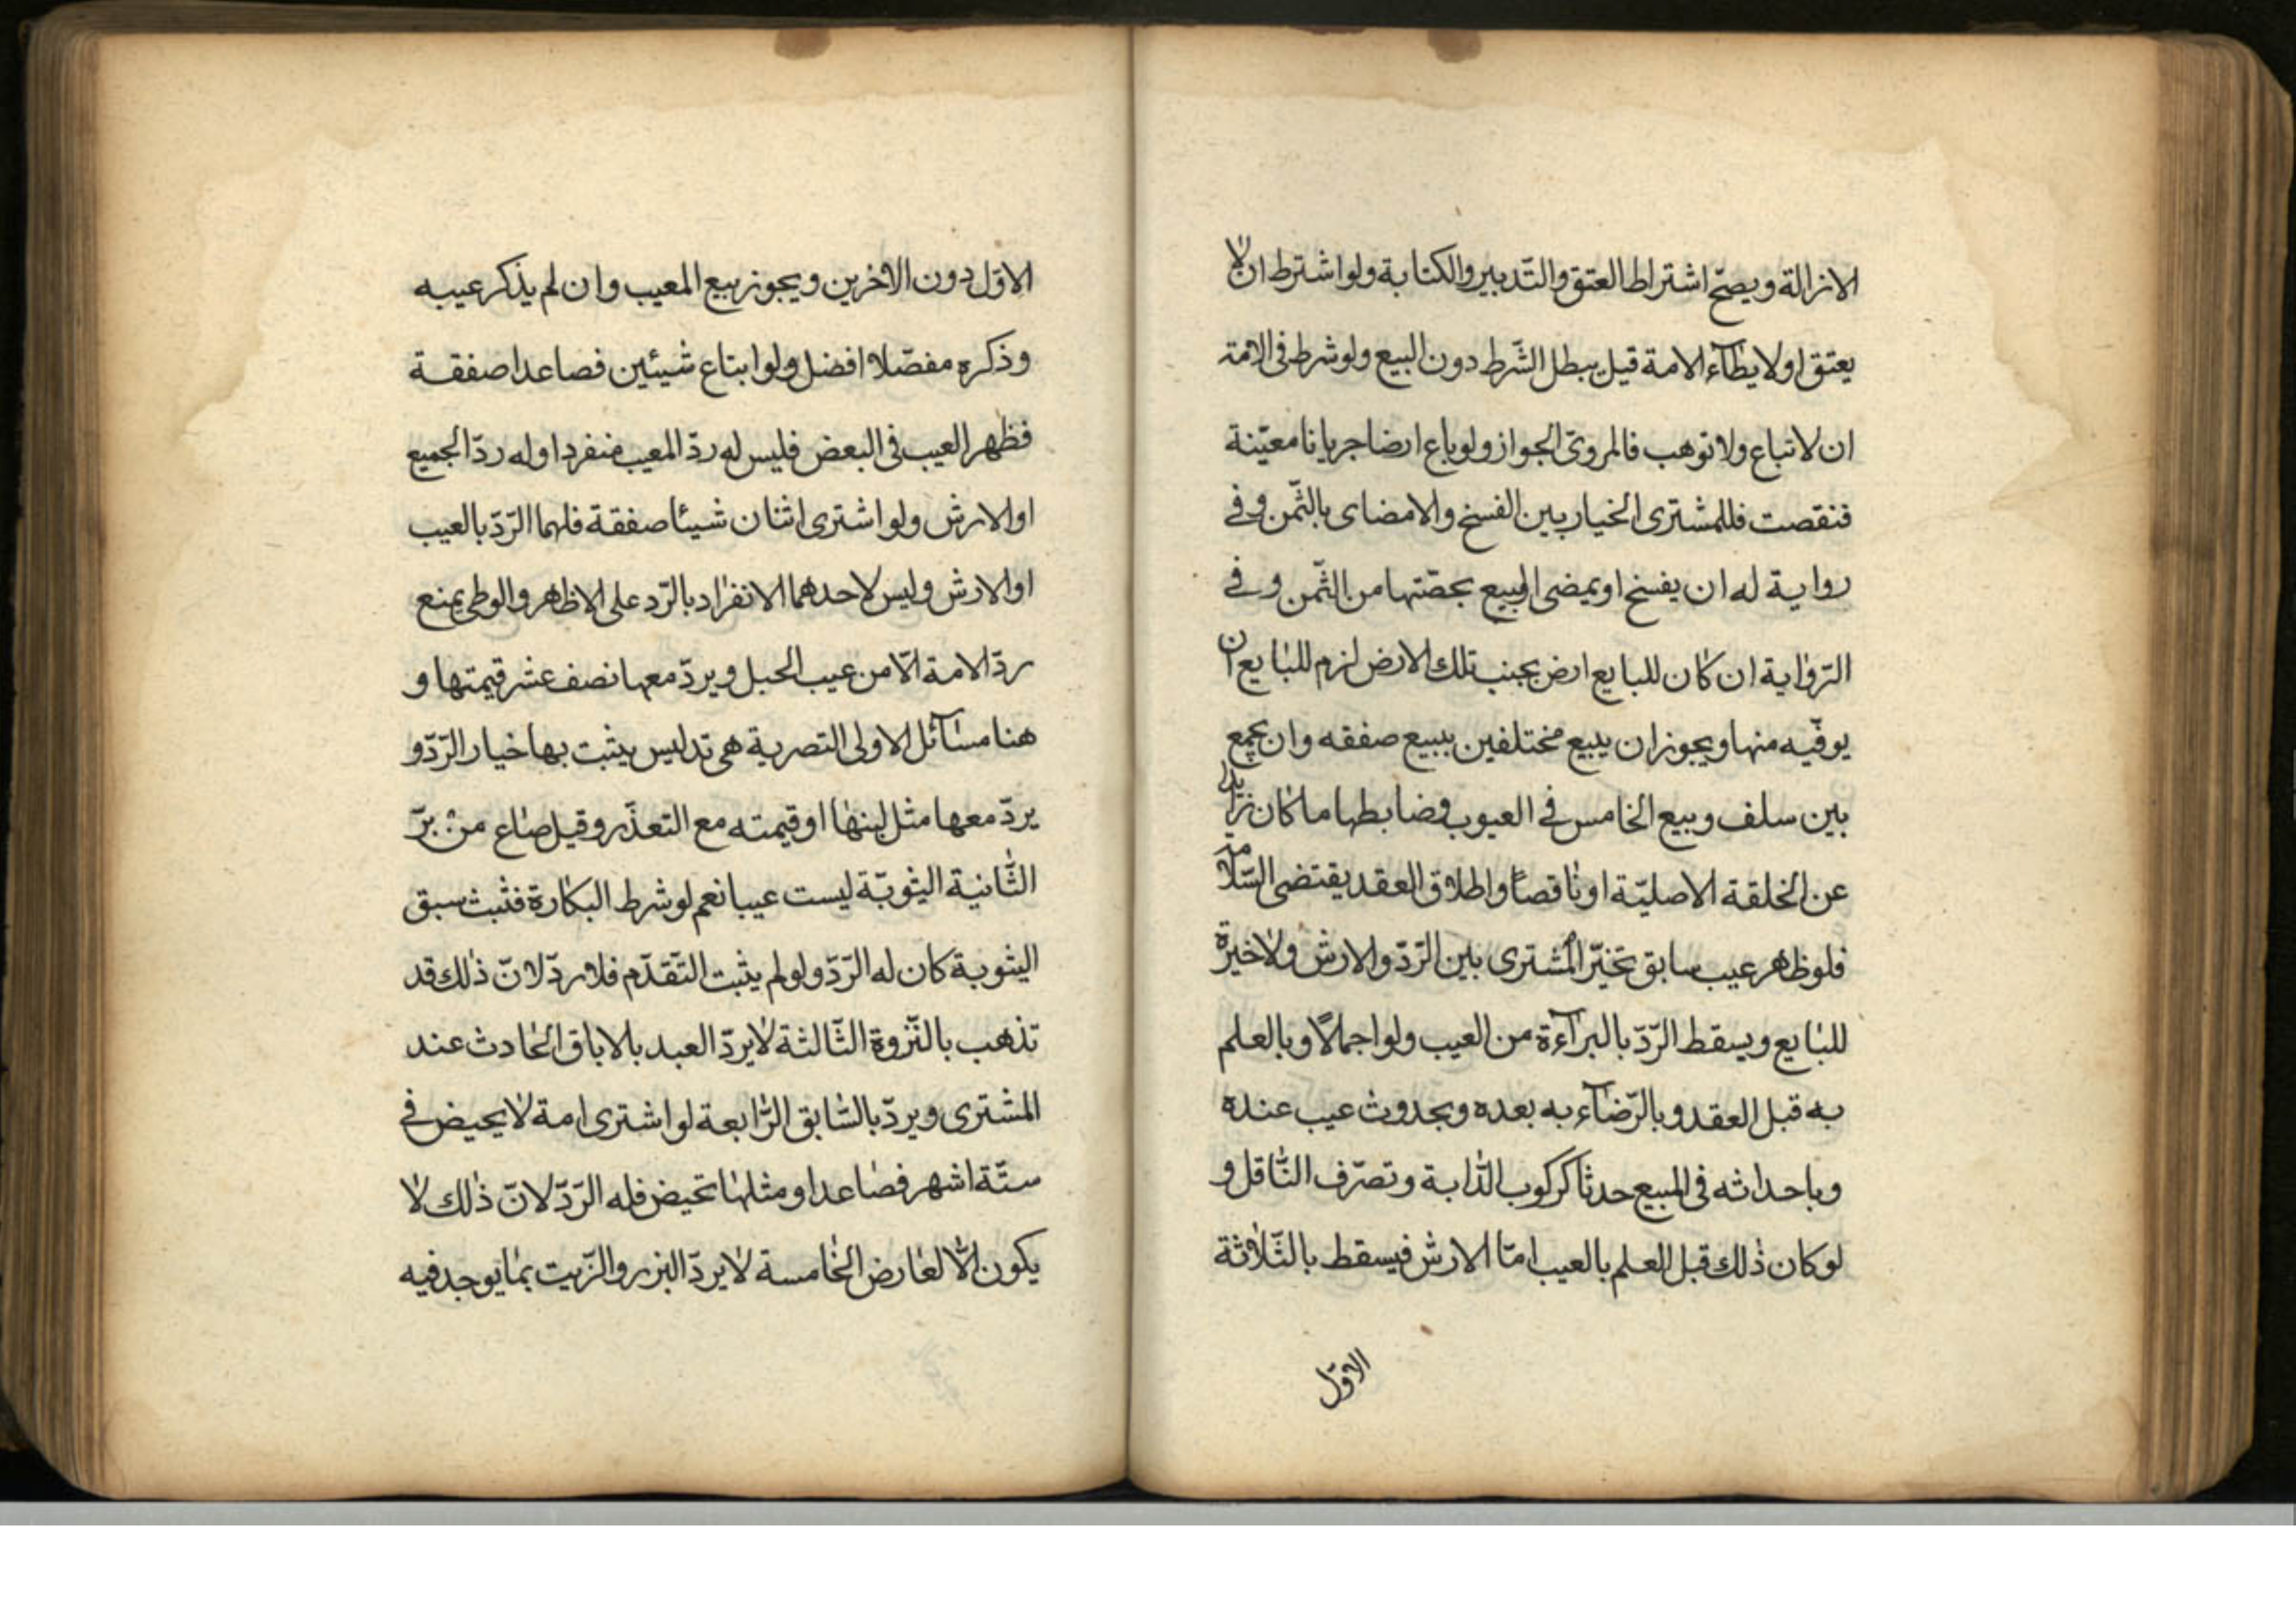 الازالة ويصحّ اشتراط العتق والتّدبير والكتابة ولو اشترط ان لا
يعتق او لا يطأء الامة قيل يبطل الشّرط دون البيع ولو شرط فى الامة
ان لا تباع ولا توهب فالمروىّ الجواز ولو باع ارضا جربانا معيّنة
فنقصت فللمشترى الخيار بين الفسخ والامضاى بالثّمن وفى
رواية له ان يفسخ او يمضى البيع بحصّتها من الثّمن وفى
الرّواية ان كان للبايع ارض بجنب تلك الارض لزم للبايع ان
يوفّيه منها ويجوز ان يبيع مختلفين ببيع صفقه وان يجمع
بين سلف وبيع الخامس فى العيوب وضابطها ما كان زايدا
عن الخلقة الاصليّة او ناقصاً واطلاق العقد يقتضى السّلامة
فلو ظهر عيب سابق تخيّر المشترى بين الرّدّ والارش ولا خيرة
للبايع ويسقط الرّدّ بالبرآءة من العيب ولو اجمالاً وبالعلم
به قبل العقد وبالرّضآء به بعده وبحدوث عيب عنده
وباحداثه فى المبيع حدثا كركوب الدّابة وتصرّف النّاقل و
لو كان ذلك قبل العلم بالعيب امّا الارش فيسقط بالثّلاثة
الاوّل
الاوّل دون الاخرين ويجوز بيع المعيب وان لم يذكر عيبه
وذكره مفصّلا افضل ولو ابتاع شيئين فصاعدا صفقة
فظهر العيب فى البعض فليس له ردّ المعيب منفردا وله ردّ الجميع
او الارش ولو اشترى اثنان شيئا صفقة فلهما الرّدّ بالعيب
او الارش وليس لاحدهما الانفراد بالرّد على الاظهر والوطى يمنع
ردّ الامة الّا من عيب الحبل ويردّ معها نصف عشر قيمتها و
هنا مسآئل الاولى التصرية هى تدليس يثبت بها خيار الرّدّ و
يردّ معها مثل لبنها او قيمته مع التعذّر وقيل صاع من برّ
الثّانية الثيوبّة ليست عيبا نعم لو شرط البكارة فثبث سبق
الثيوبة كان له الرّدّ ولو لم يثبت التّقدّم فلا ردّ لانّ ذلك قد
تذهب بالنّزوة الثّالثة لا يردّ العبد بالاباق الحادث عند
المشترى ويردّ بالسّابق الرّابعة لو اشترى امة لا يحيض فى
ستّة اشهر فصاعدا ومثلها تحيض فله الرّدّ لانّ ذلك لا
يكون الّا لعارض الخامسة لا يردّ البزر والزّيت بما يوجد فيه